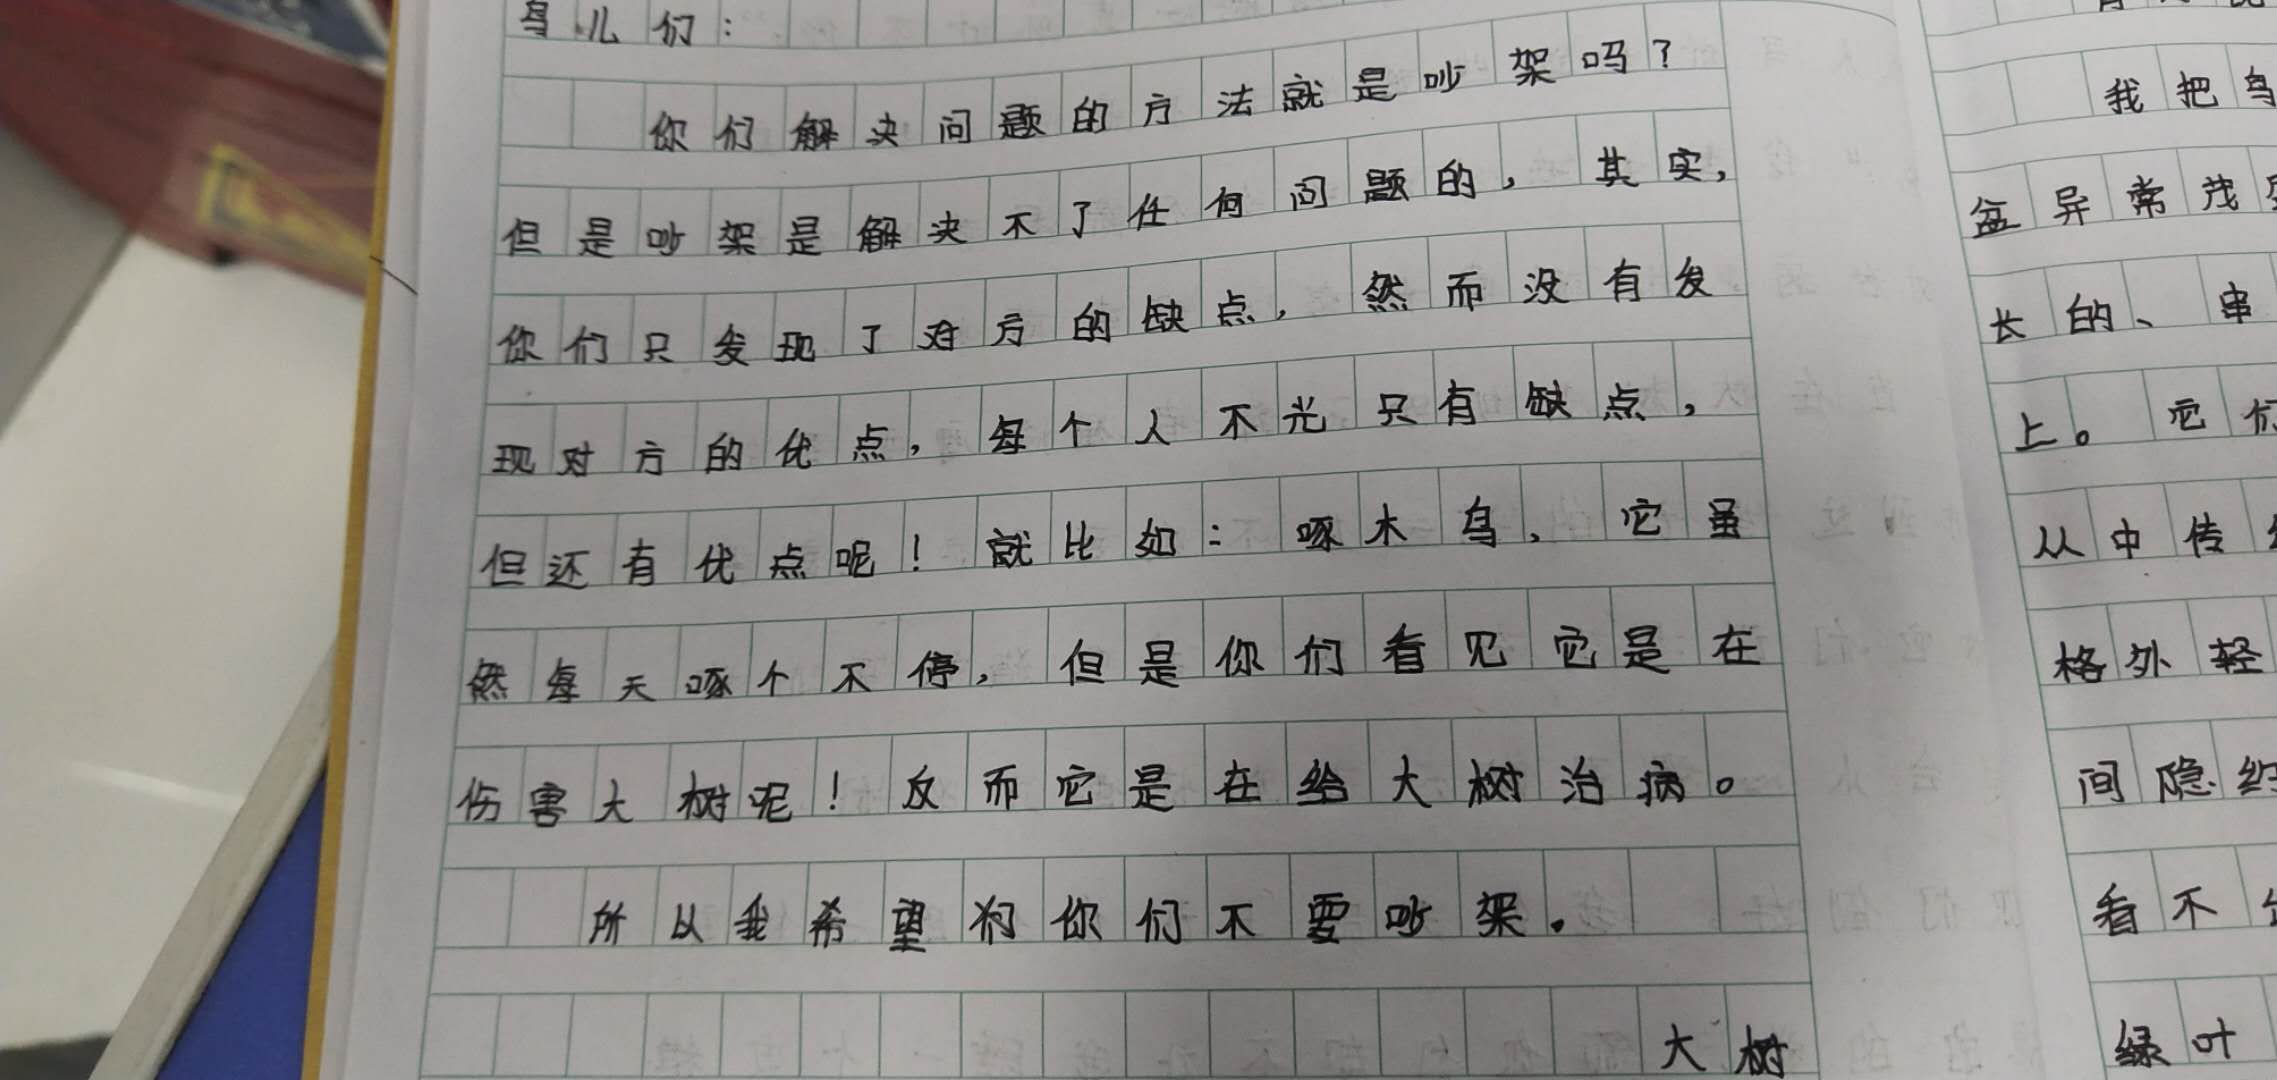 鸟儿们：
你们解决问题的方法就是吵架吗？
但是吵架是解决不了任何问题的，其实，
你们只发现了对方的缺点，然而没有发
现对方的优点，每个人不光只有缺点，
但还有优点呢！就比如：啄木鸟，它虽
然每天啄个不停，但是你们看见它是在
伤害大树呢！反而它是在给大树治病。
所以我希望你们不要吵架。
大树
我把鸟
盆异常茂
长的、串
上。它们
从中传
格外轻
间隐约
看不
绿叶